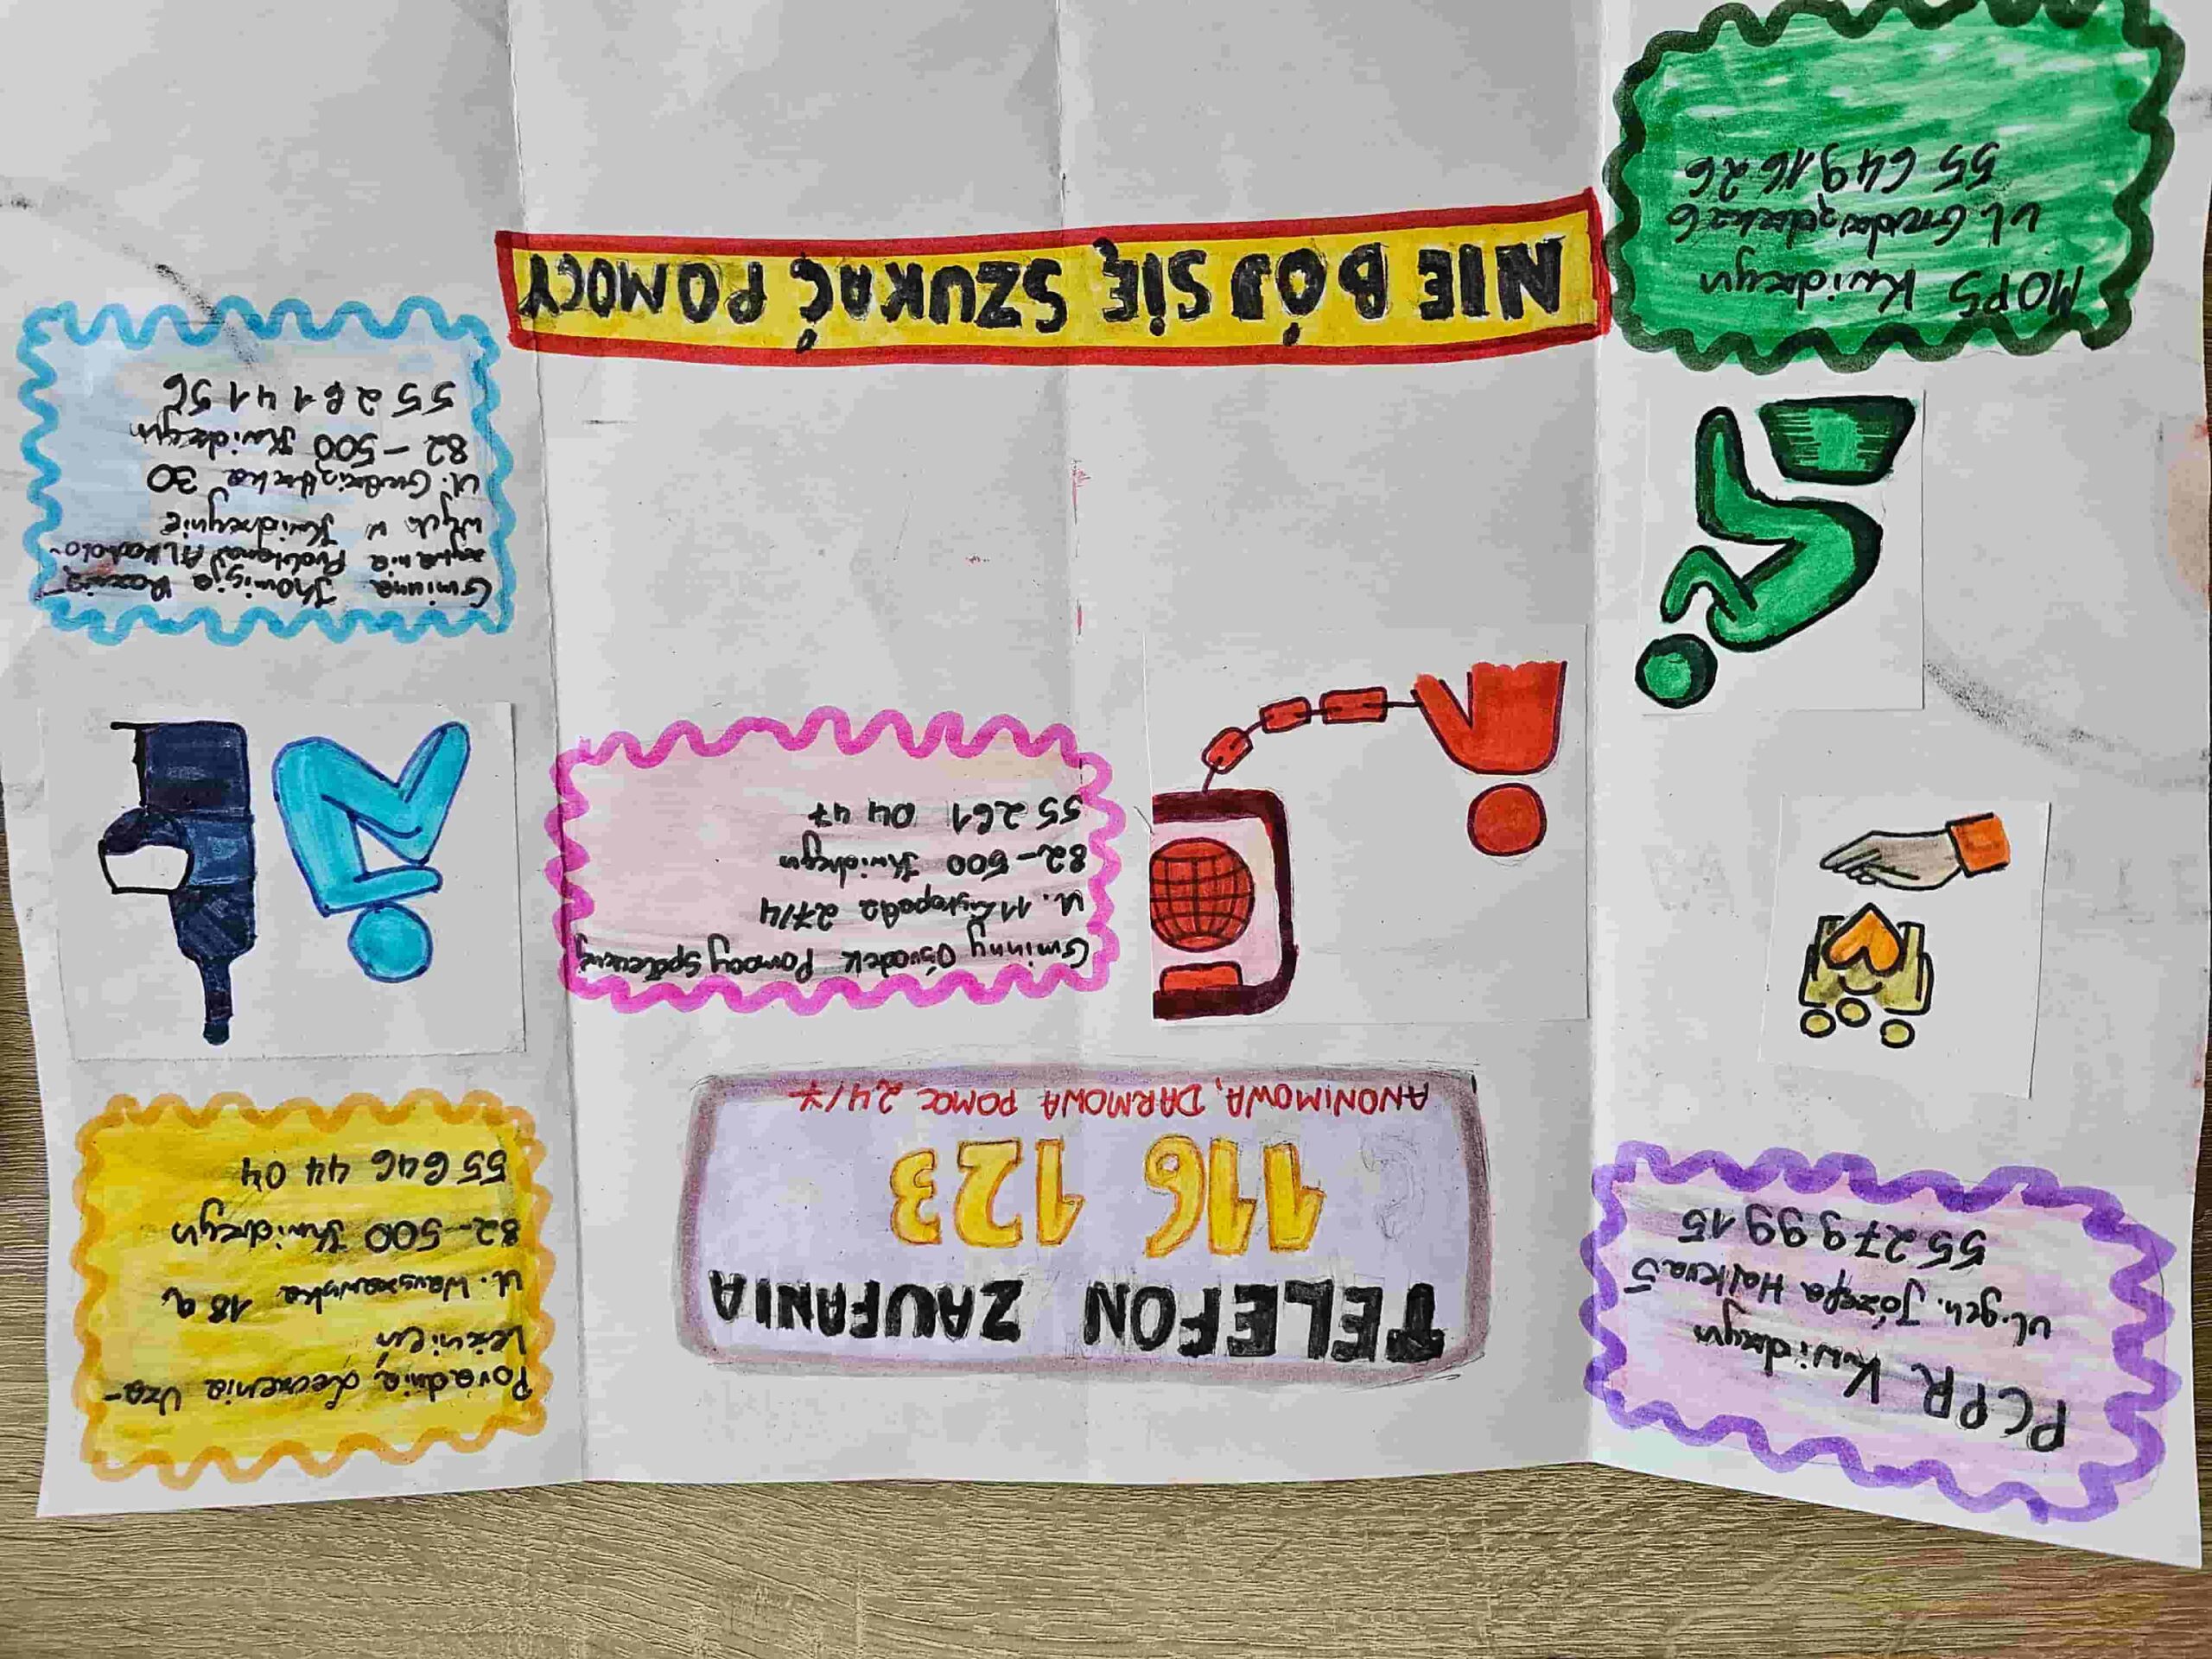 PCPR Kwidzyn
ul. gen. Józefa Hallera 5
55 279 99 15
TELEFON ZAUFANIA
116 123
ANONIMOWA, DARMOWA POMOC 24/7
Poradnia Leczenia Uza-
leżnień
ul. Warszawska 18 a
82-500 Kwidzyn
55 646 44 04
Gminny Ośrodek Pomocy Społecznej
ul. 11 Listopada 27/4
82-500 Kwidzyn
55 261 04 47
MOPS Kwidzyn
ul Grudziądzka 6
55 649 16 26
NIE BÓJ SIĘ SZUKAĆ POMOCY
Gminna Komisja Rozwią-
zywania Problemów Alkoholo-
wych w Kwidzynie
ul. Grudziądzka 30
82-500 Kwidzyn
55 261 41 56